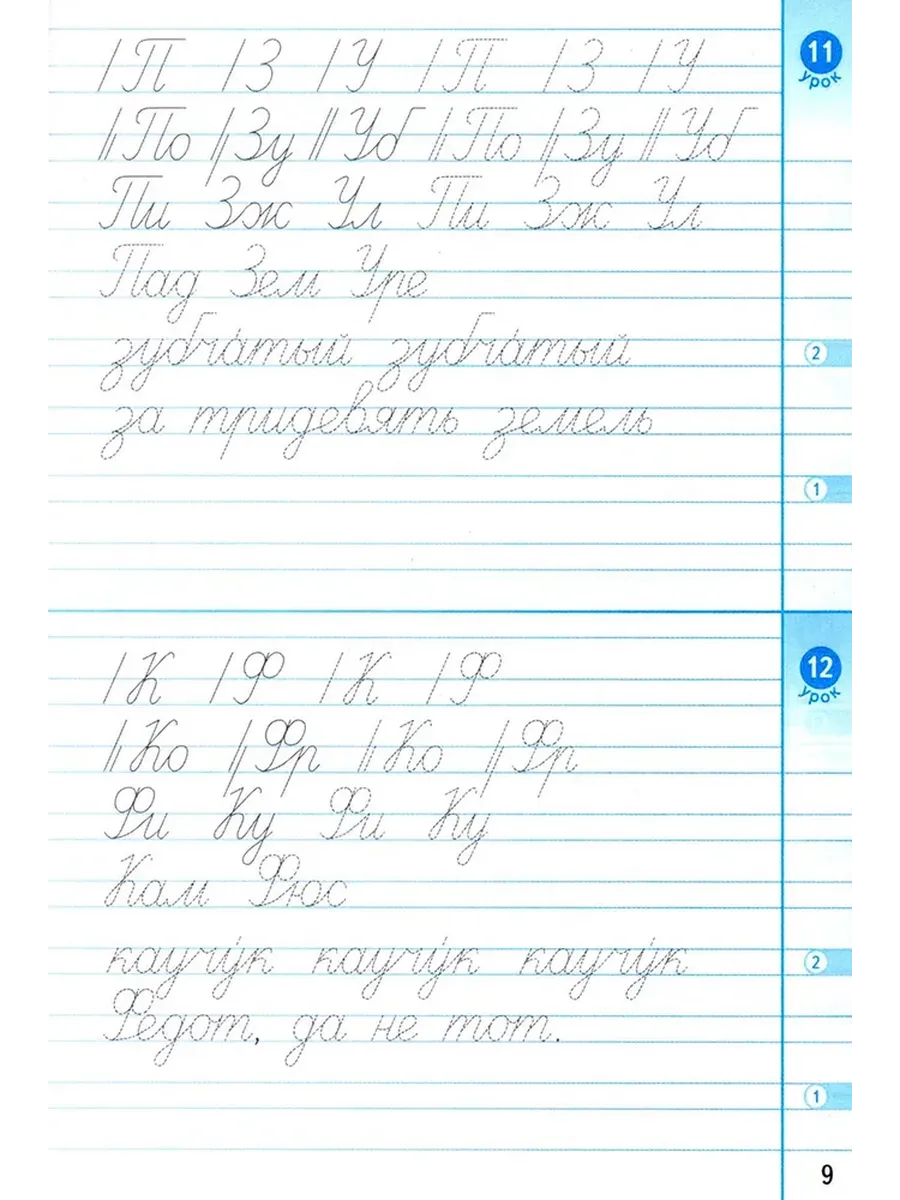 П З У П З У
11
урок
По Зу Уб По Зу Уб
Пи Зж Ул Пи Зж Ул
Пад Зем Уре
зубча́тый зубча́тый
2
за тридевять земель
1
К Ф К Ф
12
урок
Ко Фр Ко Фр
Фи Ку Фи Ку
Кам Фюс
каучу́к каучу́к каучу́к
2
Федот, да не тот.
1
9